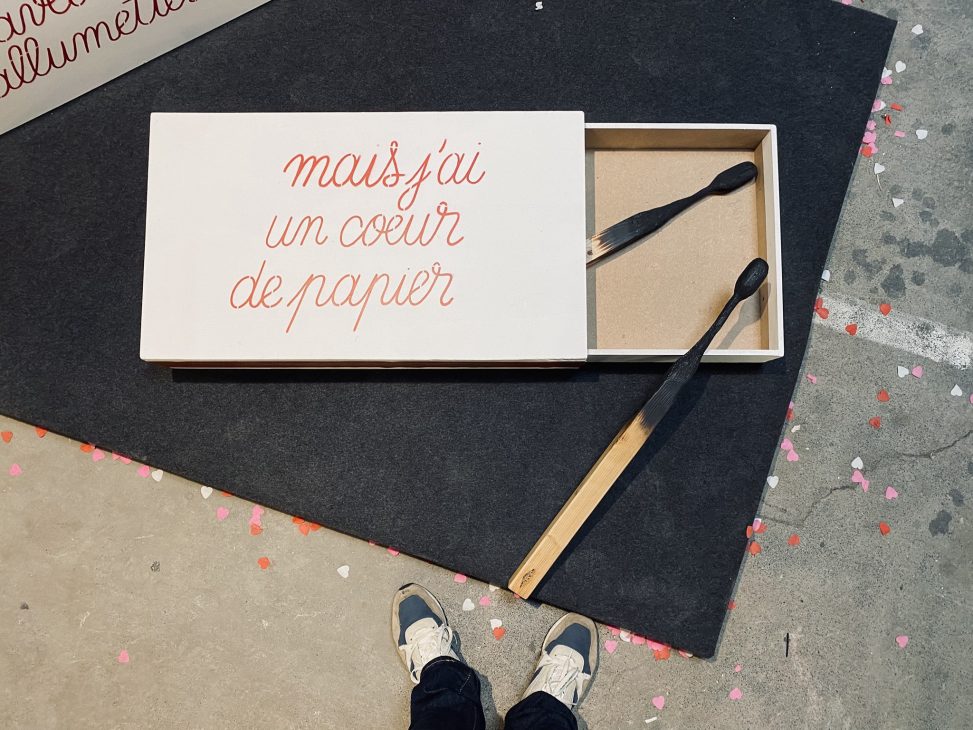 allumette
mais j'ai
un cœur
de papier